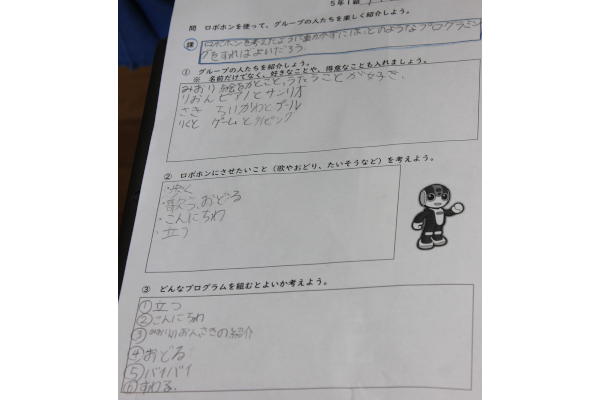 5年1組
問 ロボホンを使って、グループの人たちを楽しく紹介しよう。
課 ロボホンを考えたように動かすには、どのようなプログラミン
グをすればよいだろう
① グループの人たちを紹介しよう。
※ 名前だけでなく、好きなことや、得意なことも入れましょう。
みおり 絵をかくこと、うたうことが好き、
りおん ピアノとサンリオ
さき ちいかわとプール
りくと ゲームとタイピング
② ロボホンにさせたいこと(歌やおどり、たいそうなど)を考えよう。
・歩く
・歌う、おどる
・こんにちわ
・立つ
③ どんなプログラムを組むとよいか考えよう。
①立つ
②こんにちわ
③みおりりおんさきの紹介
④おどる
⑤バイバイ
⑥すわる.